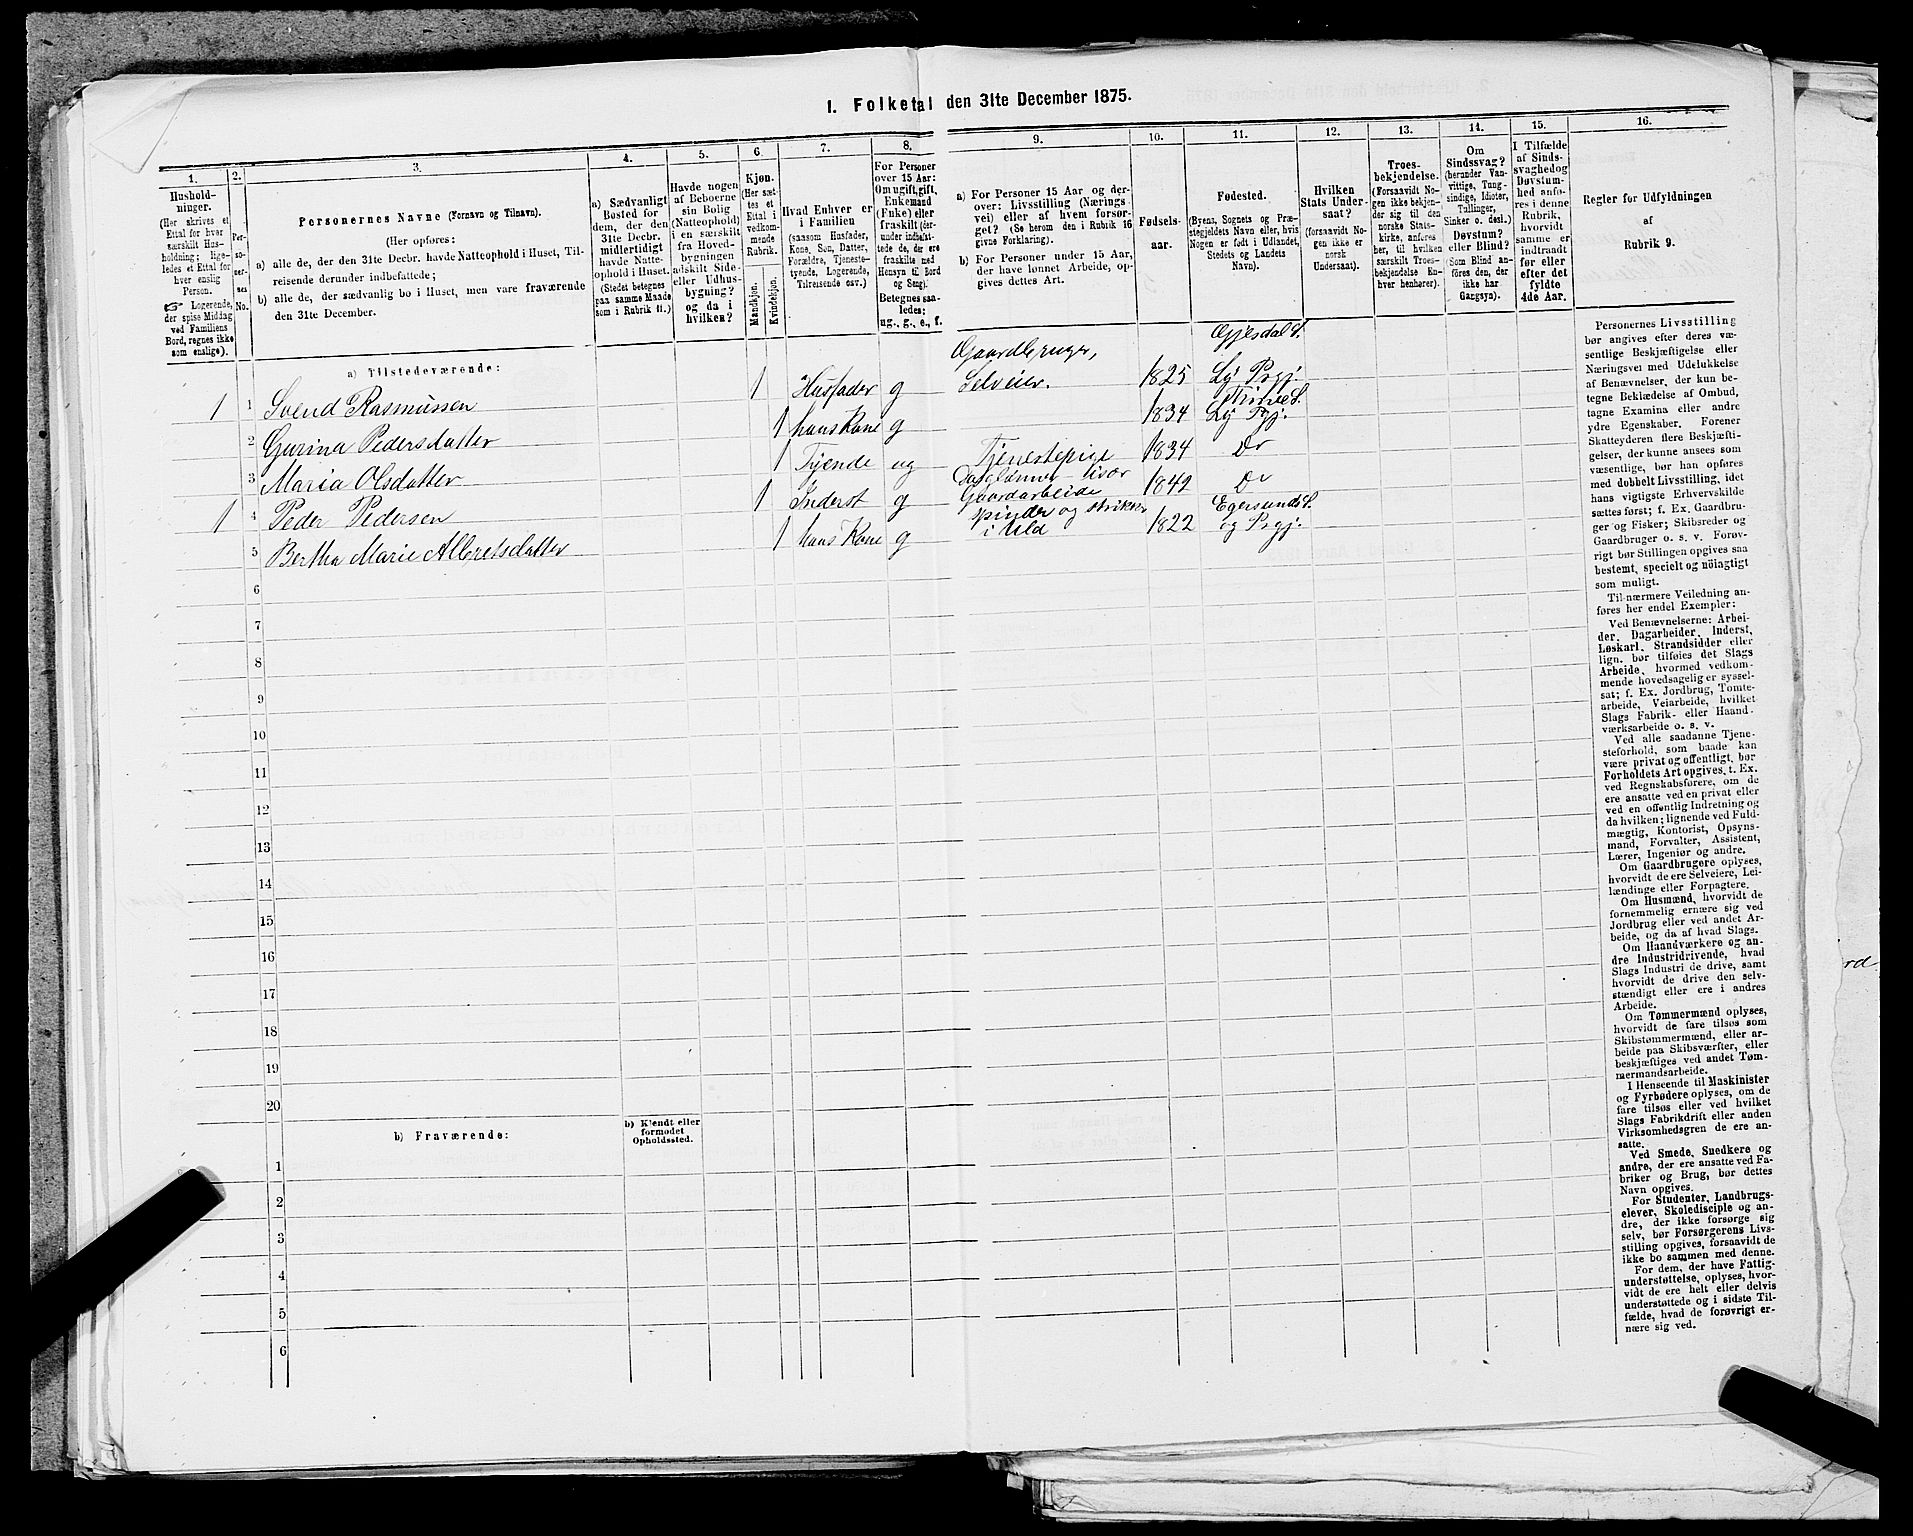 1. Folketal den 31te December 1875.
1.
Hushold-
ninger.
(Her skrives et
Ettal for hver
særskilt Hus-
holdning; lige-
ledes et Ettal for
hver enslig
Person.
☞ Logerende,
der spise Middag
ved Familiens
Bord, regnes ikke
som enslige).
2.
Per-
so-
ner-
nes
No.
3.
Personernes Navne (Fornavn og Tilnavn).
(Her opføres:
a) alle de, der den 31te Decbr. havde Natteophold i Huset, Til-
reisende derunder indbefattede;
b) alle de, der sædvanlig bo i Huset, men vare fraværende
den 31te December.
4.
a) Sædvanligt
Bosted for
dem, der den
31te Decbr.
midlertidigt
havde Natte-
ophold i Huset.
(Stedet betegnes
paa samme Maade
som i Rubrik 11.)
5.
Havde nogen
af Beboerne
sin Bolig
(Natteophold)
i en særskilt
fra Hoved-
bygningen
adskilt Side-
eller Udhus-
bygning?
og da i
hvilken?
6.
Kjøn.
(Her sæt-
tes et
Ettal i
vedkom-
mende
Rubrik.
Mandkjøn.
Kvindekjøn.
7.
Hvad Enhver er
i Familien
(saasom Husfader,
Kone, Søn, Datter,
Forældre, Tjeneste-
tyende, Logerende,
Tilreisende osv.).
8.
For Personer
over 15 Aar:
Om ugift, gift,
Enkemand
(Enke) eller
fraskilt (der-
under indbefat-
tede de, der ere
fraskilte med
Hensyn til Bord
og Seng).
Betegnes saa-
ledes:
ug., g., e., f.
9.
a) For Personer 15 Aar og der-
over: Livsstilling (Nærings-
vei) eller af hvem forsør-
get? (Se herom den i Rubrik 16
givne Forklaring).
b) For Personer under 15 Aar,
der have lønnet Arbeide, op-
gives dettes Art.
10.
Fødsels-
aar.
11.
Fødested.
(Byens, Sognets og Præ-
stegjeldets Navn eller, hvis
Nogen er født i Udlandet,
Stedets og Landets
Navn).
12.
Hvilken
Stats Under-
saat?
(forsaavidt No-
gen ikke er
norsk
Undersaat).
13.
Troes-
bekjendelse.
(Forsaavidt No-
gen ikke bekjen-
der sig til den
norske Stats-
kirke, anføres
her, til hvilken
særskilt Troes-
bekjendelse En-
hver henhører).
14.
Om
Sindssvag?
(herunder Van-
vittige, Tung-
sindige, Idioter,
Tullinger,
Sinker o. desl.).
Døvstum?
eller Blind?
(Som Blind an-
føres den, der
ikke har
Gangsyn).
15.
I Tilfælde
af Sinds-
svaghed og
Døvstum-
hed anfø-
res i denne
Rubrik,
hvorvidt
samme er
indtraadt
før eller
efter det
fyldte
4de Aar.
16.
Regler for Udfyldningen
af
Rubrik 9.
a) Tilstedeværende:
1 1 Svend Rasmussen 1 Husfader g Gaardbruger, Selveier. 1825 Gjesdal S. Ly Prgj.
2 Gurina Pedersdatter 1 hans Kone g 1834 Time S. Ly Prgj.
3 Maria Olsdatter 1 Tyende ug Tjenestepige 1834 Do
1 4 Peder Pedersen 1 Inderst g Daglønner især Gaardarbeide 1842 Do
5 Bertha Marie Albretsdatter 1 hans Kone g spinder og strikker i Uld 1822 Egersunds S. og Prgj.
6
7
8
9
10
11
12
13
14
15
16
17
18
19
20
b) Fraværende:
b) Kjendt eller
formodet
Opholdssted.
1
2
3
4
5
6
Personernes Livsstilling
bør angives efter deres væ-
sentlige Beskjæftigelse eller
Næringsvei med Udelukkelse
af Benævnelser, der kun be-
tegne Beklædelse af Ombud,
tagne Examina eller andre
ydre Egenskaber. Forener
Skatteyderen flere Beskjæfti-
gelser, der kunne ansees som
væsentlige, bør han opføres
med dobbelt Livsstilling, idet
hans vigtigste Erhvervskilde
sættes først; f. Ex. Gaardbru-
ger og Fisker; Skibsreder og
Gaardbruger o. s. v. Forøv-
rigt bør Stillingen opgives saa
bestemt, specielt og nöiagtigt
som muligt.
Til nærmere Veiledning an-
føres her endel Exempler:
Ved Benævnelserne: Arbei-
der, Dagarbeider, Inderst,
Løskarl, Strandsidder eller
lign. bør tilføies det Slags
Arbeide, hvormed vedkom-
mende hovedsagelig er syssel-
sat; f. Ex. Jordbrug, Tomte-
arbeide, Veiarbeide, hvilket
Slags Fabrik- eller Haand-
værksarbeide o. s. v.
Ved alle saadanne Tjene-
steforhold, som baade kan
være privat og offentligt, bør
Forholdets Art opgives, t. Ex.
ved Regnskabsførere, om de
ere ansatte ved en privat eller
ved en offentlig Indretning og
da hvilken; lignende ved Fuld-
mægtig, Kontorist, Opsyns-
mand, Forvalter, Assistent,
Lærer, Ingeniør og andre.
Om Gaardbrugere oplyses,
hvorvidt de ere Selveiere, Lei-
lændinge eller Forpagtere.
Om Husmænd, hvorvidt de
fornemmelig ernære sig ved
Jordbrug eller ved andet Ar-
beide, og da af hvad Slags.
Om Haandværkere og an-
dre Industridrivende, hvad
Slags Industri de drive, samt
hvorvidt de drive den selv-
stændigt eller ere i andres
Arbeide.
Om Tømmermænd oplyses,
hvorvidt de fare tilsøs som
Skibstømmermænd, eller ar-
beide paa Skibsværfter, eller
beskjæftiges ved andet Tøm-
mermandsarbeide.
I Henseende til Maskinister
og Fyrbødere oplyses, om de
fare tilsøs eller ved hvilket
Slags Fabrikdrift eller anden
Virksomhedsgren de ere an-
satte.
Ved Smede, Snedkere og
andre, der ere ansatte ved Fa-
briker og Brug, bør dettes
Navn opgives.
For Studenter, Landbrugs-
elever, Skoledisciple og an-
dre, der ikke forsørge sig
selv, bør Forsørgerens Livs-
stilling opgives, forsaavidt de
ikke bo sammen med denne.
For dem, der have Fattig-
understøttelse, oplyses, hvor-
vidt de ere helt eller delvis
understøttede og i sidste Til-
fælde, hvad de forøvrigt er-
nære sig ved.